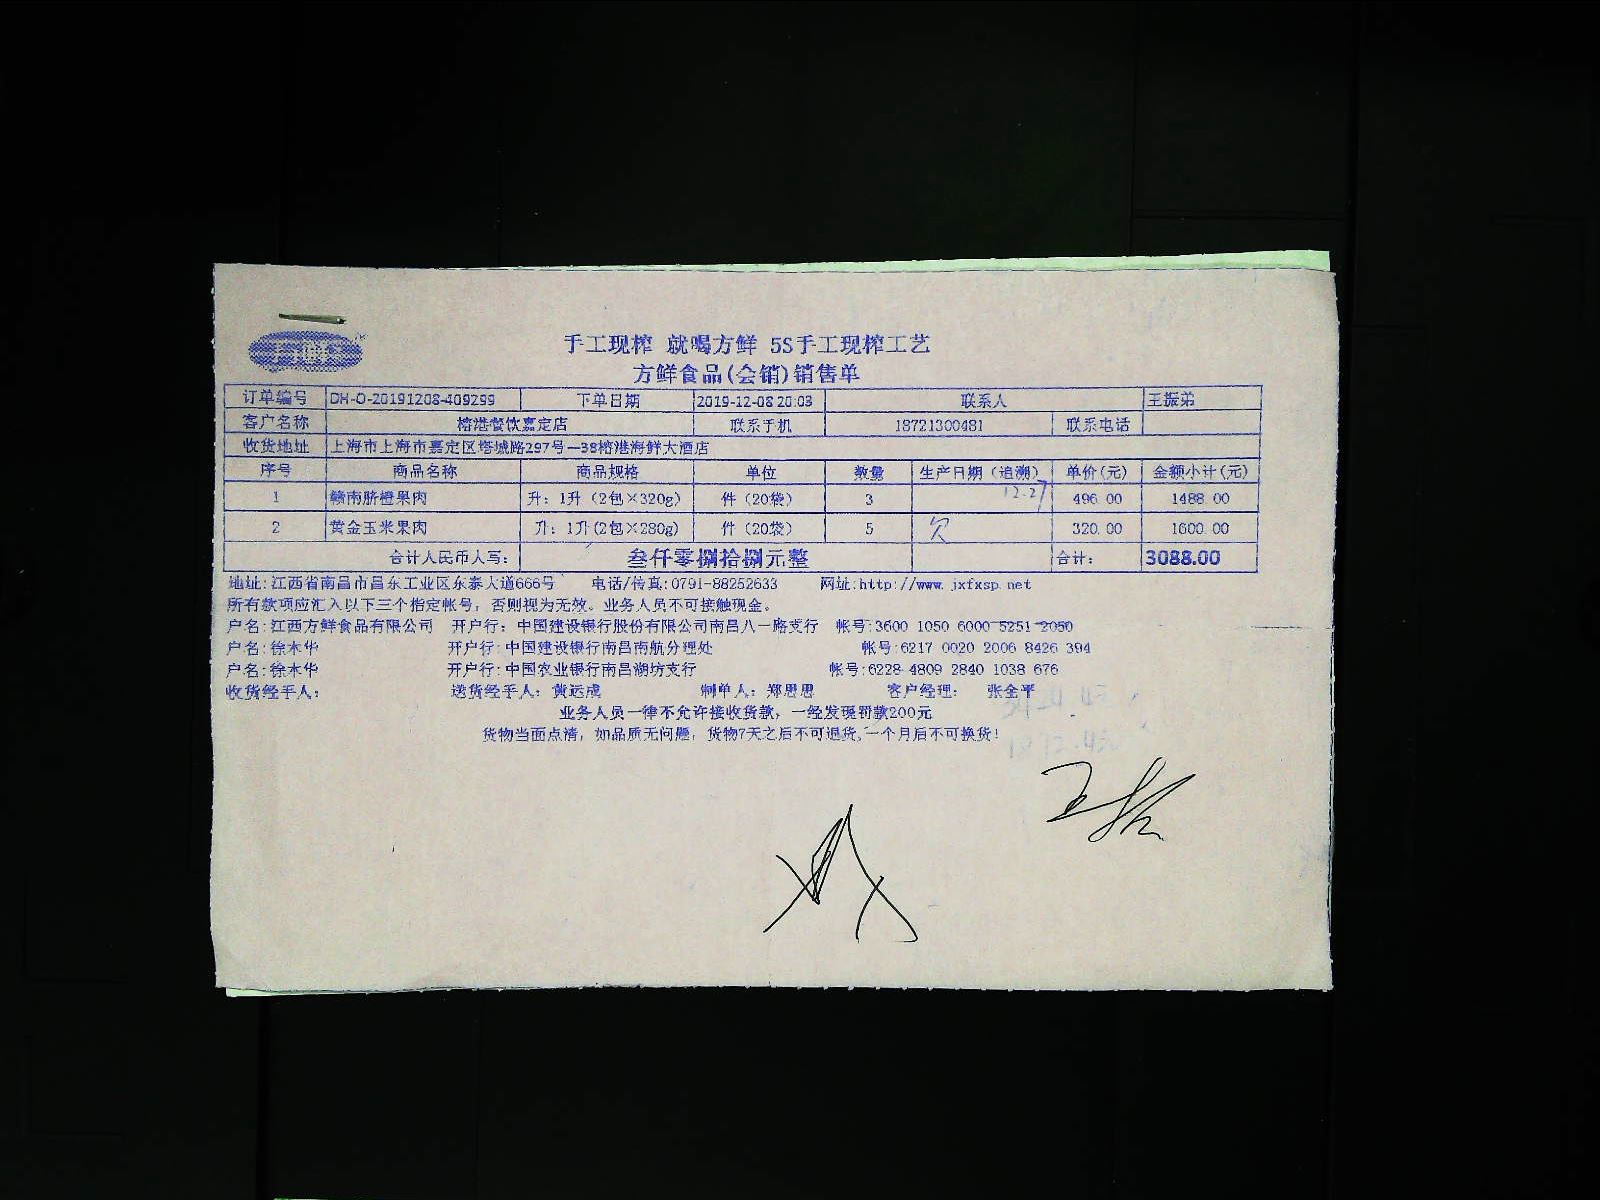 手工现榨 就喝方鲜 5S手工现榨工艺
方鲜食品(会销)销售单
订单编号 DH-O-20191208-409299 下单日期 2019-12-08 20:03 联系人 王振弟
客户名称 榕港餐饮嘉定店 联系手机 18721300481 联系电话
收货地址 上海市上海市嘉定区塔城路297号—38榕港海鲜大酒店
序号 商品名称 商品规格 单位 数量 生产日期（追溯） 单价(元) 金额小计(元)
1 赣南脐橙果肉 升：1升（2包×320g） 件（20袋） 3 12.27 496.00 1488.00
2 黄金玉米果肉 升：1升(2包×280g) 件（20袋） 5 欠 320.00 1600.00
合计人民币大写： 叁仟零捌拾捌元整 合计： 3088.00
地址:江西省南昌市昌东工业区东泰大道666号 电话/传真:0791-88252633 网址:http://www.jxfxsp.net
所有款项应汇入以下三个指定帐号，否则视为无效。业务人员不可接触现金。
户名:江西方鲜食品有限公司 开户行：中国建设银行股份有限公司南昌八一路支行 帐号:3600 1050 6000 5251 2050
户名:徐木华 开户行:中国建设银行南昌南航分理处 帐号:6217 0020 2006 8426 394
户名:徐木华 开户行:中国农业银行南昌湖坊支行 帐号:6228 4809 2840 1038 676
收货经手人： 送货经手人：黄远成 制单人：郑思思 客户经理： 张金平
业务人员一律不允许接收货款，一经发现罚款200元
货物当面点清，如品质无问题，货物7天之后不可退货,一个月后不可换货！